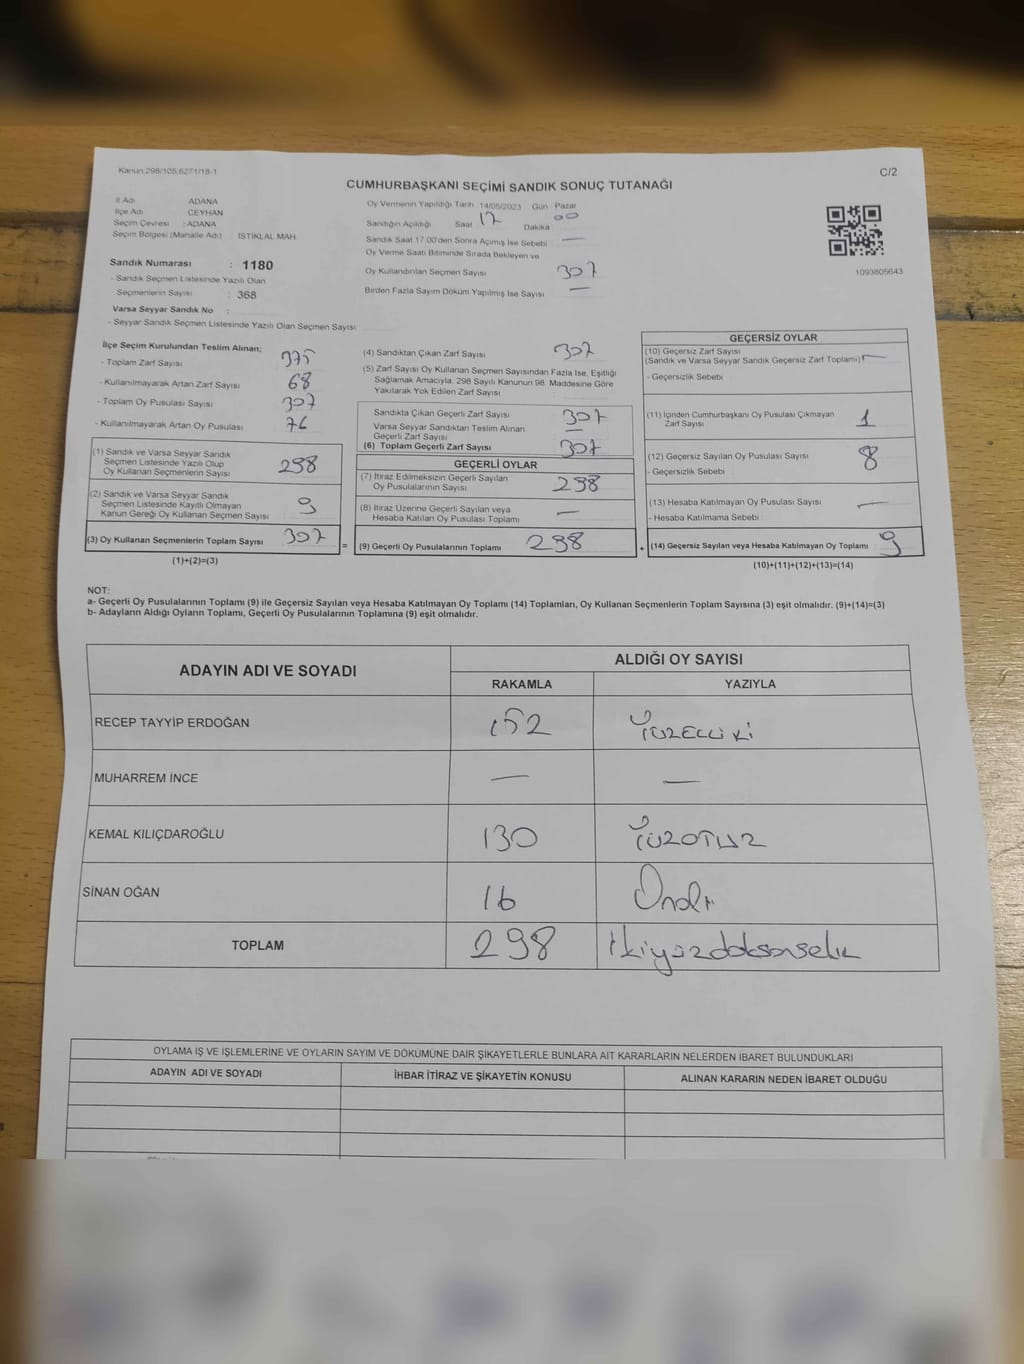 Kanun:298/105,6271/18-1
C/2
CUMHURBAŞKANI SEÇİMİ SANDIK SONUÇ TUTANAĞI
İl Adı ADANA
İlçe Adı CEYHAN
Seçim Çevresi : ADANA
Seçim Bölgesi (Mahalle Adı) : İSTİKLAL MAH.
Sandık Numarası : 1180
- Sandık Seçmen Listesinde Yazılı Olan
Seçmenlerin Sayısı : 368
Varsa Seyyar Sandık No :
- Seyyar Sandık Seçmen Listesinde Yazılı Olan Seçmen Sayısı
Oy Vermenin Yapıldığı Tarih :14/05/2023 Gün : Pazar
Sandığın Açıldığı Saat 17 Dakika 00
Sandık Saat 17:00'den Sonra Açılmış İse Sebebi —
Oy Verme Saati Bitiminde Sırada Bekleyen ve
Oy Kullandırılan Seçmen Sayısı 307
Birden Fazla Sayım Döküm Yapılmış İse Sayısı —
1093805643
İlçe Seçim Kurulundan Teslim Alınan;
- Toplam Zarf Sayısı 375
- Kullanılmayarak Artan Zarf Sayısı 68
- Toplam Oy Pusulası Sayısı 307
- Kullanılmayarak Artan Oy Pusulası 76
(1) Sandık ve Varsa Seyyar Sandık
Seçmen Listesinde Yazılı Olup
Oy Kullanan Seçmenlerin Sayısı 298
(2) Sandık ve Varsa Seyyar Sandık
Seçmen Listesinde Kayıtlı Olmayan
Kanun Gereği Oy Kullanan Seçmen Sayısı 9
(3) Oy Kullanan Seçmenlerin Toplam Sayısı 307
(1)+(2)=(3)
=
(4) Sandıktan Çıkan Zarf Sayısı 307
(5) Zarf Sayısı Oy Kullanan Seçmen Sayısından Fazla İse, Eşitliği
Sağlamak Amacıyla, 298 Sayılı Kanunun 98. Maddesine Göre
Yakılarak Yok Edilen Zarf Sayısı
Sandıkta Çıkan Geçerli Zarf Sayısı 307
Varsa Seyyar Sandıktan Teslim Alınan
Geçerli Zarf Sayısı —
(6) Toplam Geçerli Zarf Sayısı 307
GEÇERLİ OYLAR
(7) İtiraz Edilmeksizin Geçerli Sayılan
Oy Pusulalarının Sayısı 298
(8) İtiraz Üzerine Geçerli Sayılan veya
Hesaba Katılan Oy Pusulası Toplamı —
(9) Geçerli Oy Pusulalarının Toplamı 298
+
GEÇERSİZ OYLAR
(10) Geçersiz Zarf Sayısı
(Sandık ve Varsa Seyyar Sandık Geçersiz Zarf Toplamı) —
- Geçersizlik Sebebi
(11) İçinden Cumhurbaşkanı Oy Pusulası Çıkmayan
Zarf Sayısı 1
(12) Geçersiz Sayılan Oy Pusulası Sayısı 8
- Geçersizlik Sebebi
(13) Hesaba Katılmayan Oy Pusulası Sayısı —
- Hesaba Katılmama Sebebi
(14) Geçersiz Sayılan veya Hesaba Katılmayan Oy Toplamı 9
(10)+(11)+(12)+(13)=(14)
NOT:
a- Geçerli Oy Pusulalarının Toplamı (9) ile Geçersiz Sayılan veya Hesaba Katılmayan Oy Toplamı (14) Toplamları, Oy Kullanan Seçmenlerin Toplam Sayısına (3) eşit olmalıdır. (9)+(14)=(3)
b- Adayların Aldığı Oyların Toplamı, Geçerli Oy Pusulalarının Toplamına (9) eşit olmalıdır.
ADAYIN ADI VE SOYADI
ALDIĞI OY SAYISI
RAKAMLA YAZIYLA
RECEP TAYYİP ERDOĞAN 152 YÜZELLİ Kİ
MUHARREM İNCE — —
KEMAL KILIÇDAROĞLU 130 YÜZOTUZ
SİNAN OĞAN 16 Onaltı
TOPLAM 298 İkiyüzdoksansekiz
OYLAMA İŞ VE İŞLEMLERİNE VE OYLARIN SAYIM VE DÖKÜMÜNE DAİR ŞİKAYETLERLE BUNLARA AİT KARARLARIN NELERDEN İBARET BULUNDUKLARI
ADAYIN ADI VE SOYADI İHBAR İTİRAZ VE ŞİKAYETİN KONUSU ALINAN KARARIN NEDEN İBARET OLDUĞU